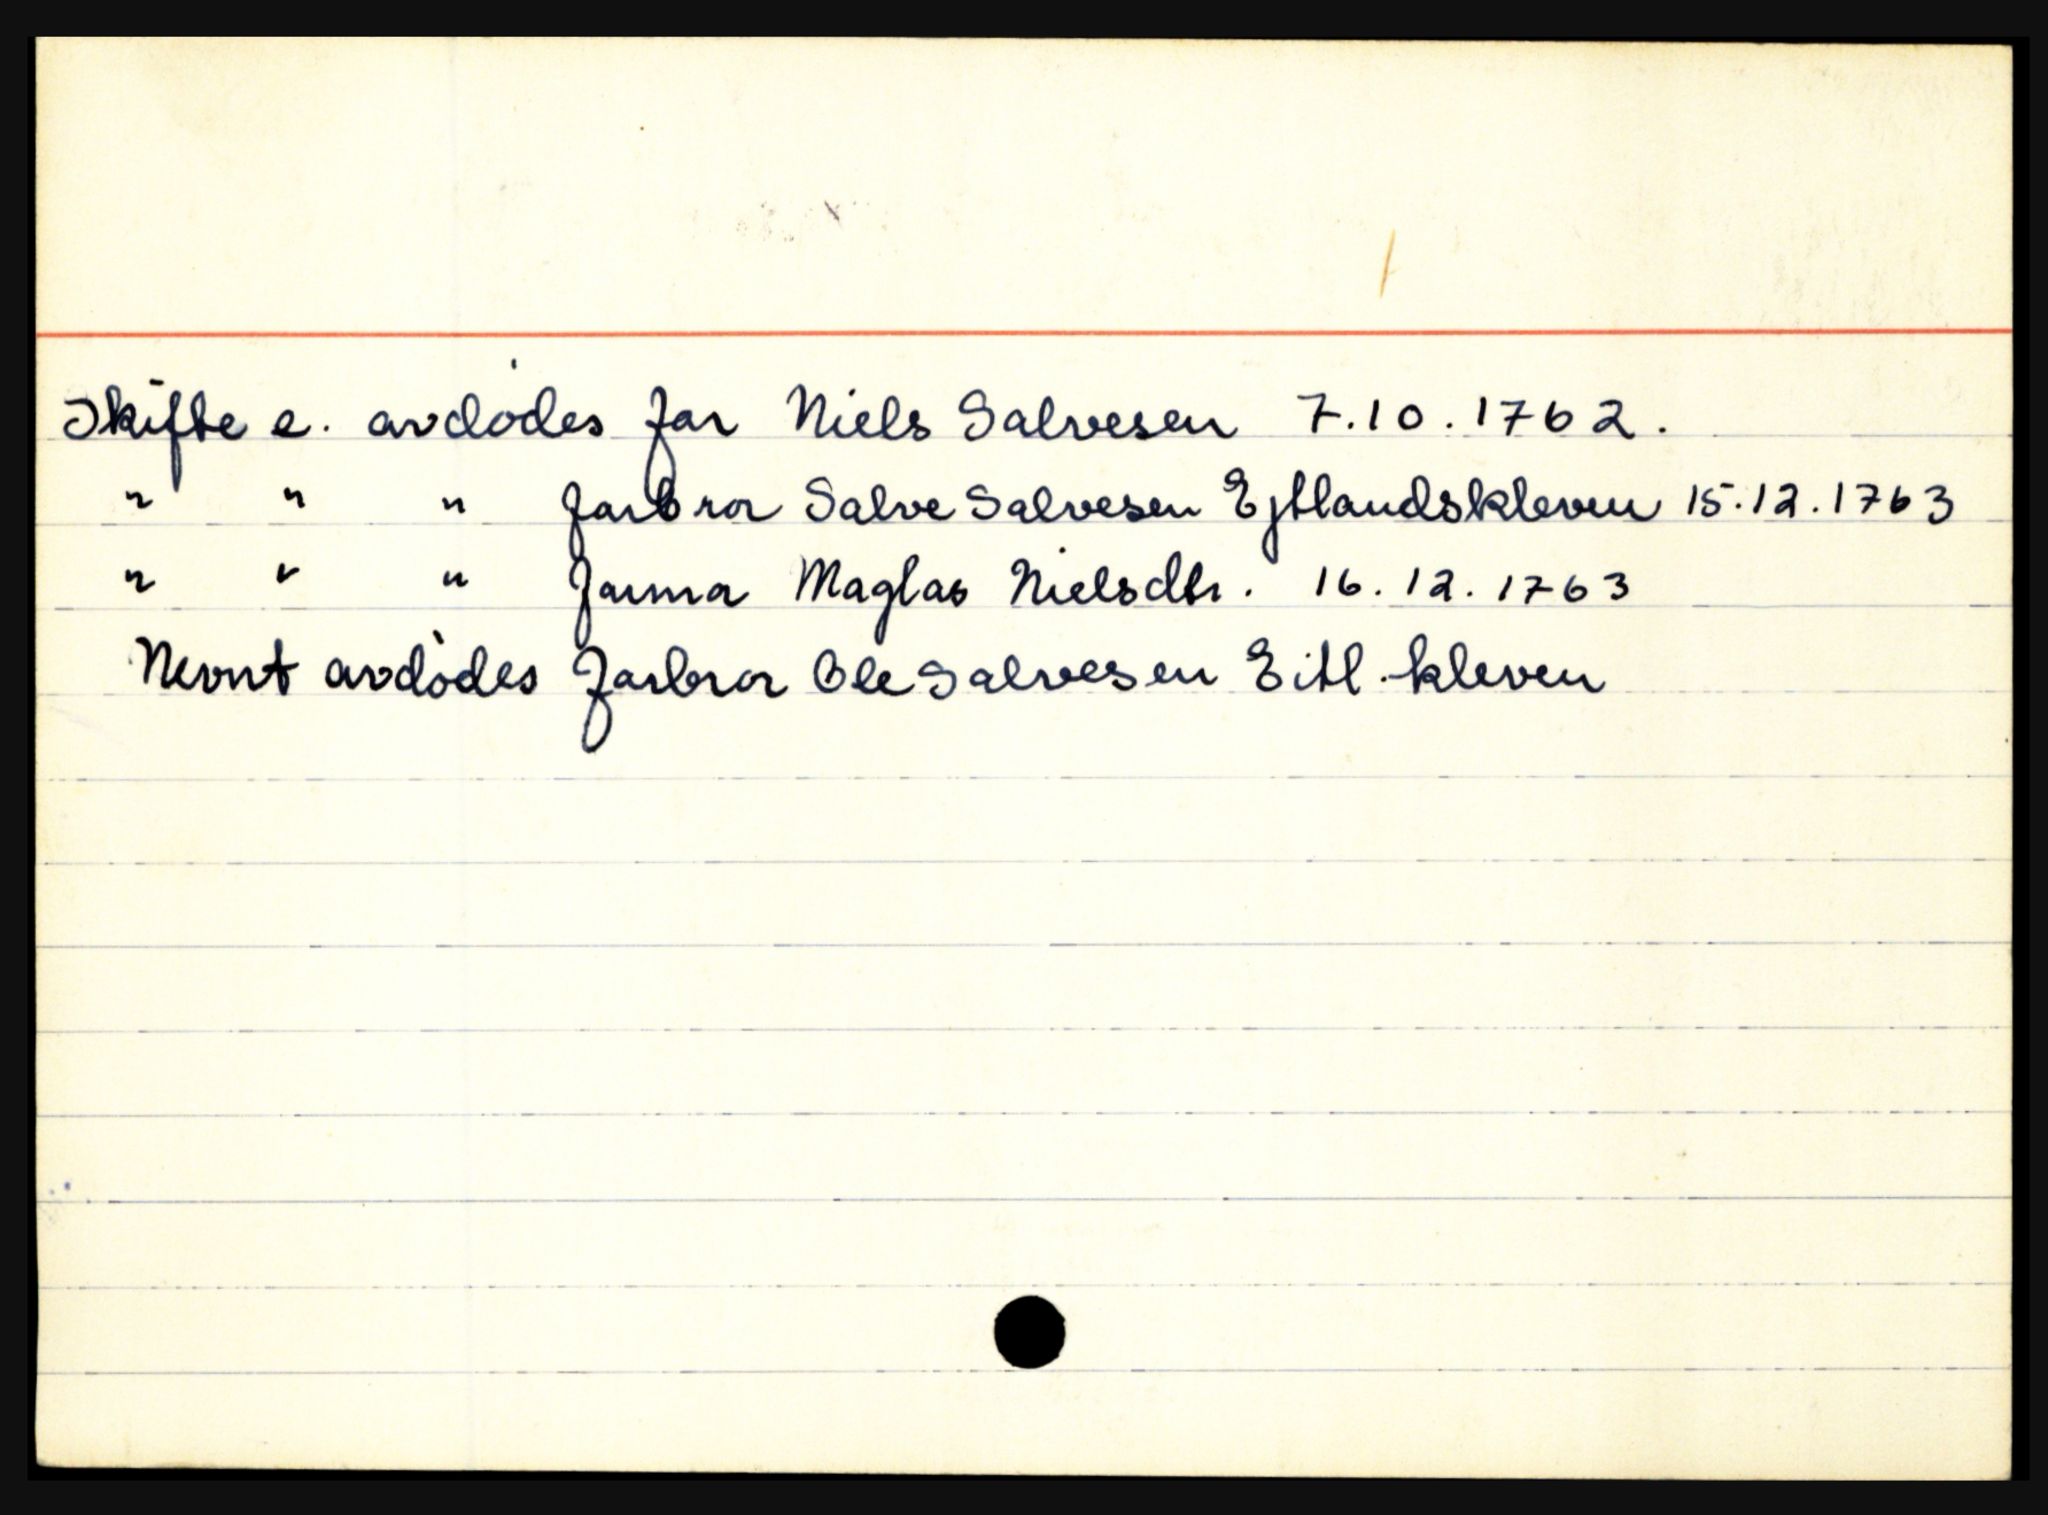 Skifte e. avdødes far Niels Salvesen 7.10.1762.
" " " farbror Salve Salvesen Ejtlandskleven 15.12.1763
" " " farmor Maglas Nielsdtr. 16.12.1763
Nevnt avdødes farbror Ole Salvesen Eitl.kleven